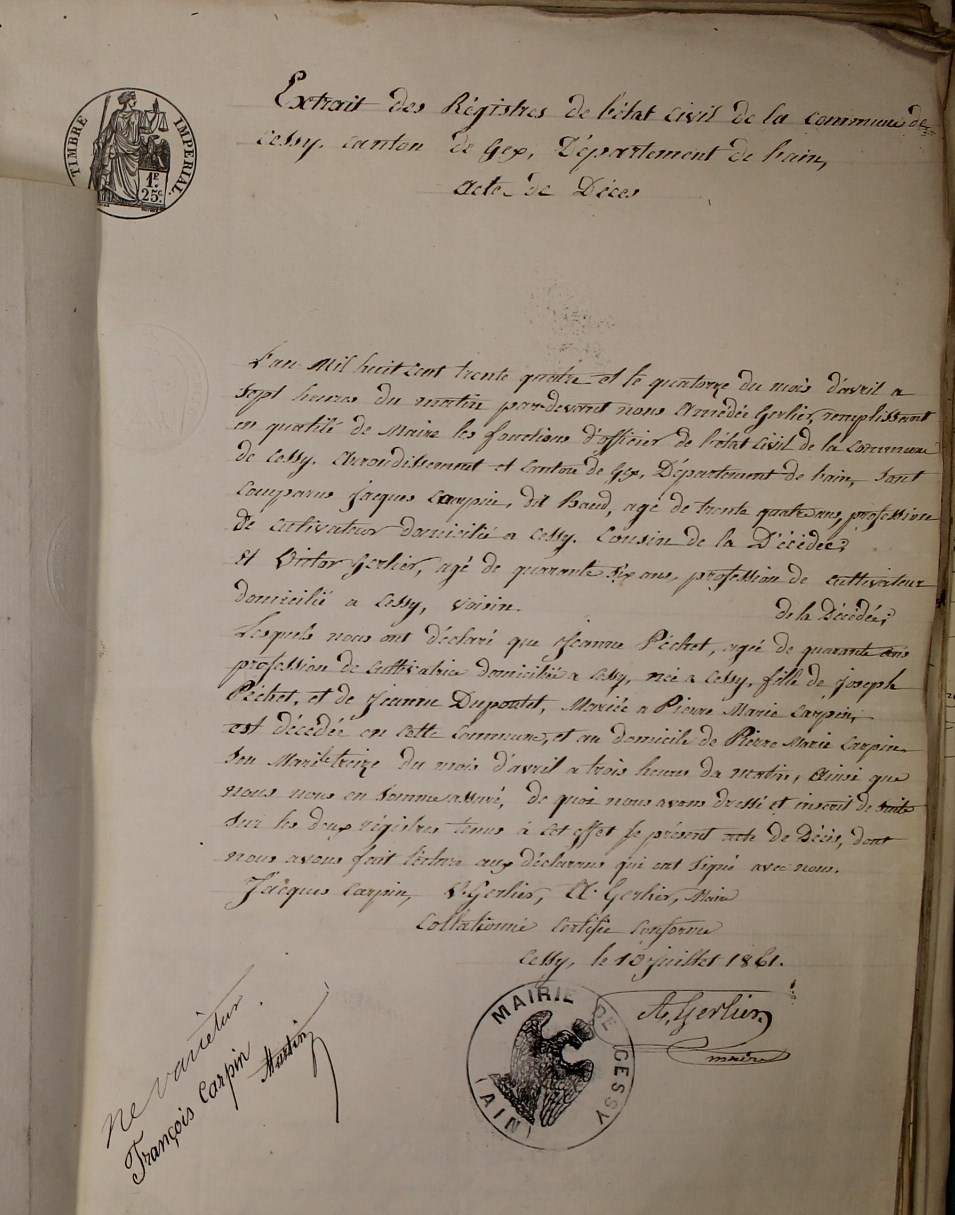 TIMBRE IMPERIAL.
1F.
25c.
Extrait des Régistres de l'état civil de la commune de
Cessy, canton de Gex, Département de l'ain,
acte de Décès
L'an Mil huit cent trente quatre et le quatorze du mois d'avril a
sept heures du matin par-devant nous Amédée Gerlier, remplissant
en qualité de Maire les fonctions d'officier de l'état civil de la commune
de Cessy, Arrondissement et Canton de Gex, Département de l'ain, sont
comparus Jacques Carpin, dit baud, agé de trente quatre ans, profession
de cultivateur domicilié a Cessy, Cousin de la Décédée;
et Victor Gerlier, agé de quarante six ans, profession de cultivateur
domicilié a Cessy, voisin de la Décédée;
Lesquels nous ont déclaré que Jeanne Péchet, agée de quarante ans
profession de cultivatrice domiciliée a Cessy, née a Cessy, fille de Joseph
Péchet, et de Jeanne Dupontet, Mariée a Pierre Marie Carpin,
est décédée en cette commune, et au domicile de Pierre Marie Carpin
son Mari le treize du mois d'avril a trois heures du matin, ainsi que
nous nous en somme assuré, de quoi nous avons dressé et inscrit de suite
sur les deux régistres tenus à cet effet le présent acte de Décès, dont
nous avons fait lecture aux déclarans qui ont signé avec nous.
Jacques Carpin, V. Gerlier, A. Gerlier, Maire
Collationné Certifié Conforme
Cessy, le 10 juillet 1861.
A. Gerlier
maire
MAIRIE DE CESSY
(AIN)
Ne varietur.
François Carpin Martin